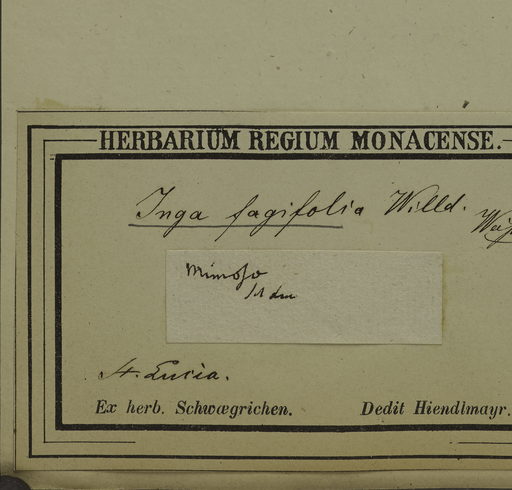 HERBARIUM REGIUM MONACENSE.
Inga fagifolia Willd.
Mimosa
St. Lucia.
Ex herb. Schwægrichen. Dedit Hiendlmayr.